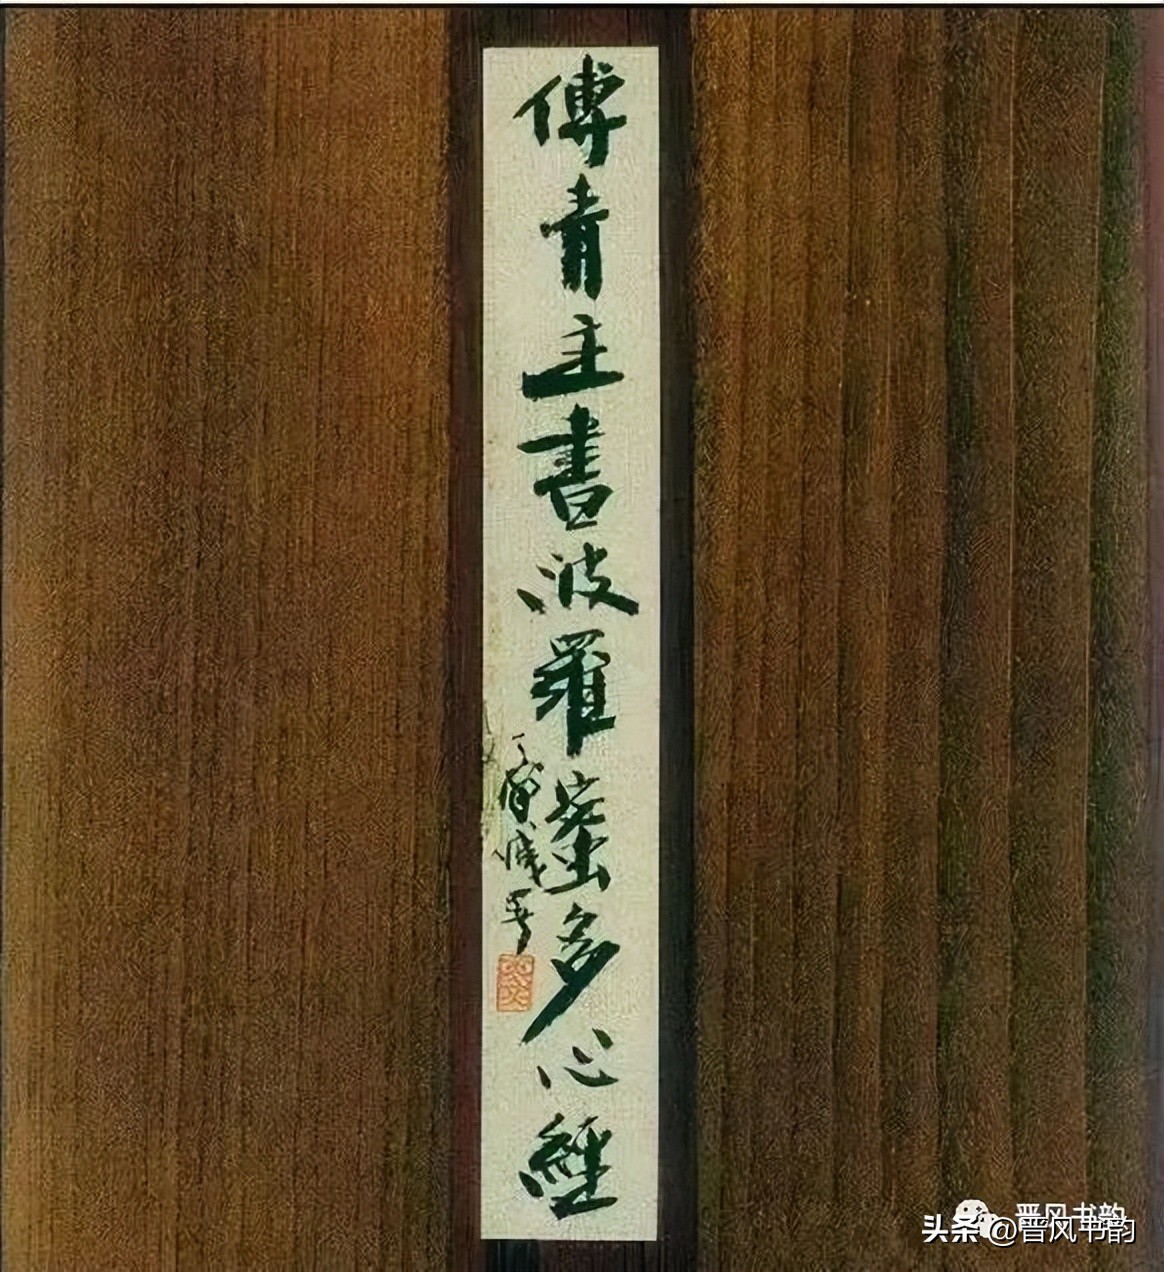 傅青主書波羅蜜多心經
晋风书韵
头条 @晋风书韵